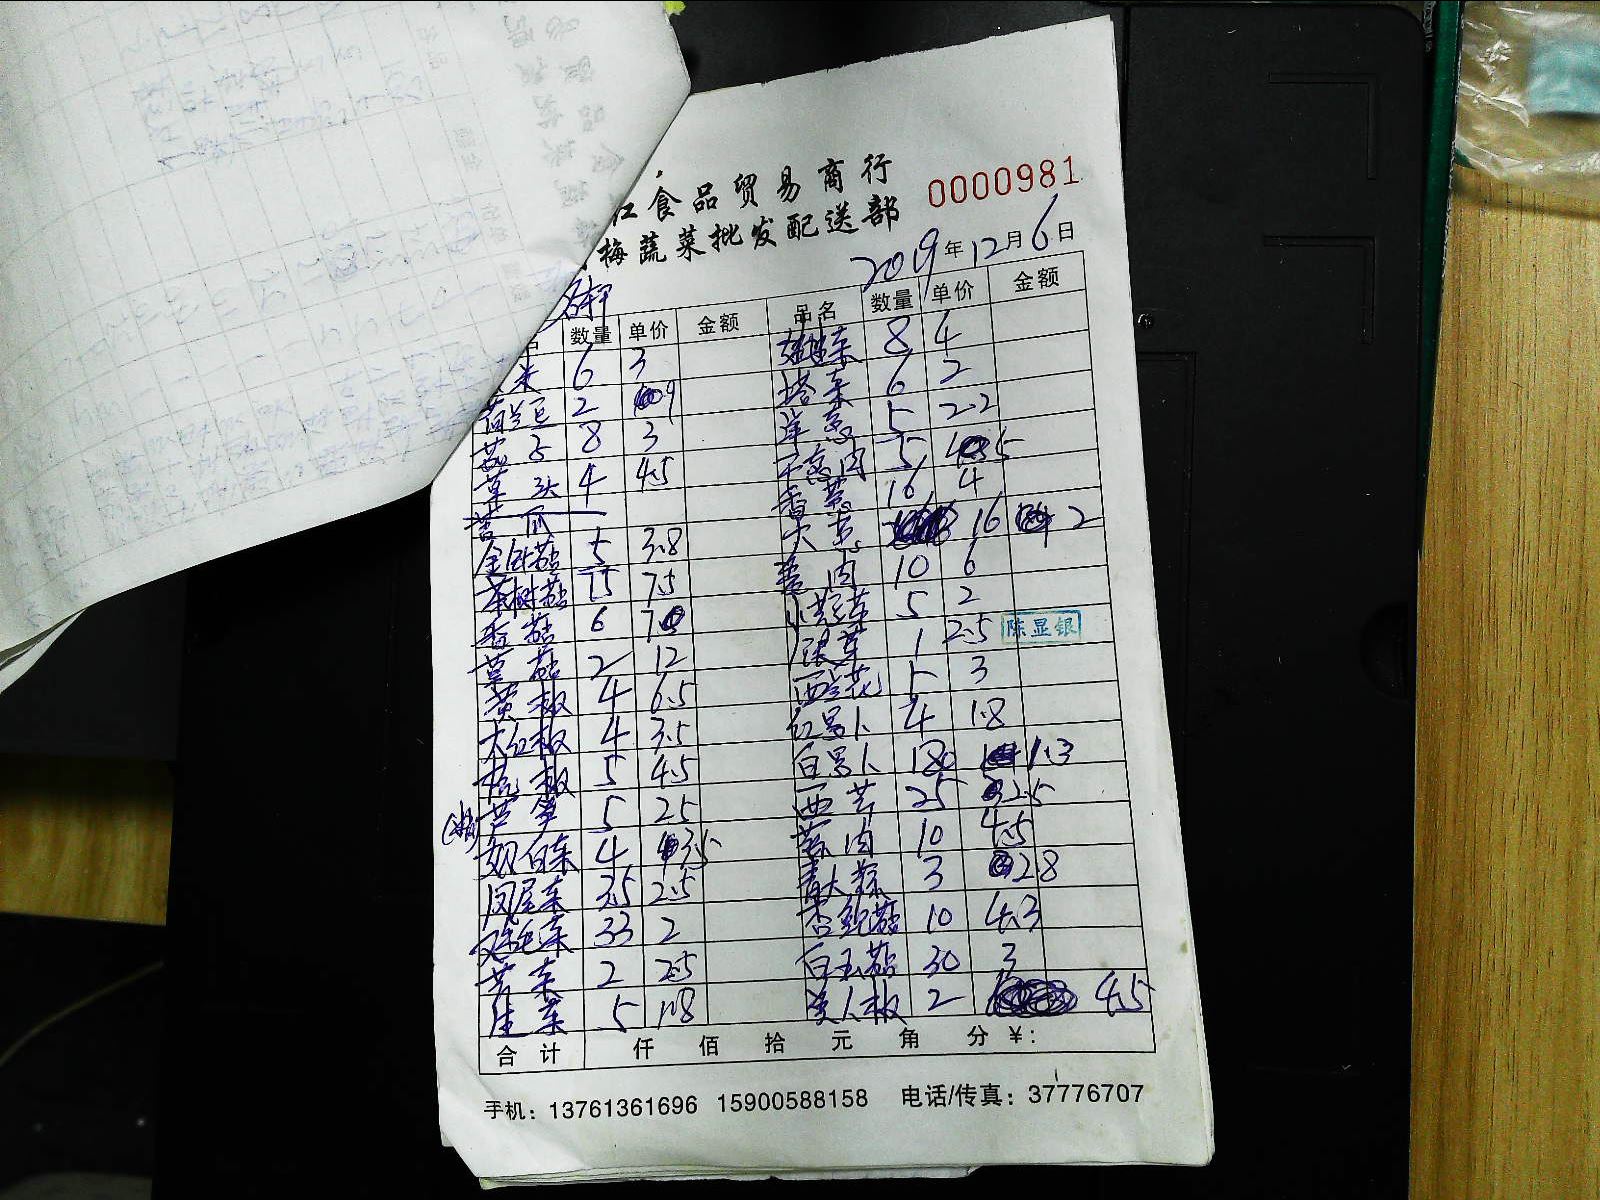 江食品贸易商行
梅蔬菜批发配送部
0000981
2019年12月6日
数量 单价 金额 品名 数量 单价 金额
米 6 3 8 4
荷兰豆 2 9 塔菜 6 2
茄子 8 3 洋葱 5 2.2
草头 4 4.5 5
苦瓜 香葱 16 4
金针菇 5 3.8 大葱 16 2
茶树菇 15 7.5 姜肉 10 6
香菇 6 7 小黄菜 5 2
草菇 2 12 1 2.5
陈显银
黄椒 4 6.5 西兰花 5 3
大红椒 4 3.5 红萝卜 4 1.8
杭椒 5 4.5 白萝卜 180 1.3
芦笋 5 25 西芹 25 2.5
奶白菜 4 3.5 蒜肉 10 4.5
凤尾菜 35 2.5 青大蒜 3 2.8
鸡毛菜 33 2 杏鲍菇 10 4.3
苦菜 2 2.5 白玉菇 30 3
生菜 5 1.8 美人椒 2 4.5
合计 仟 佰 拾 元 角 分 ¥:
手机:13761361696 15900588158 电话/传真:37776707